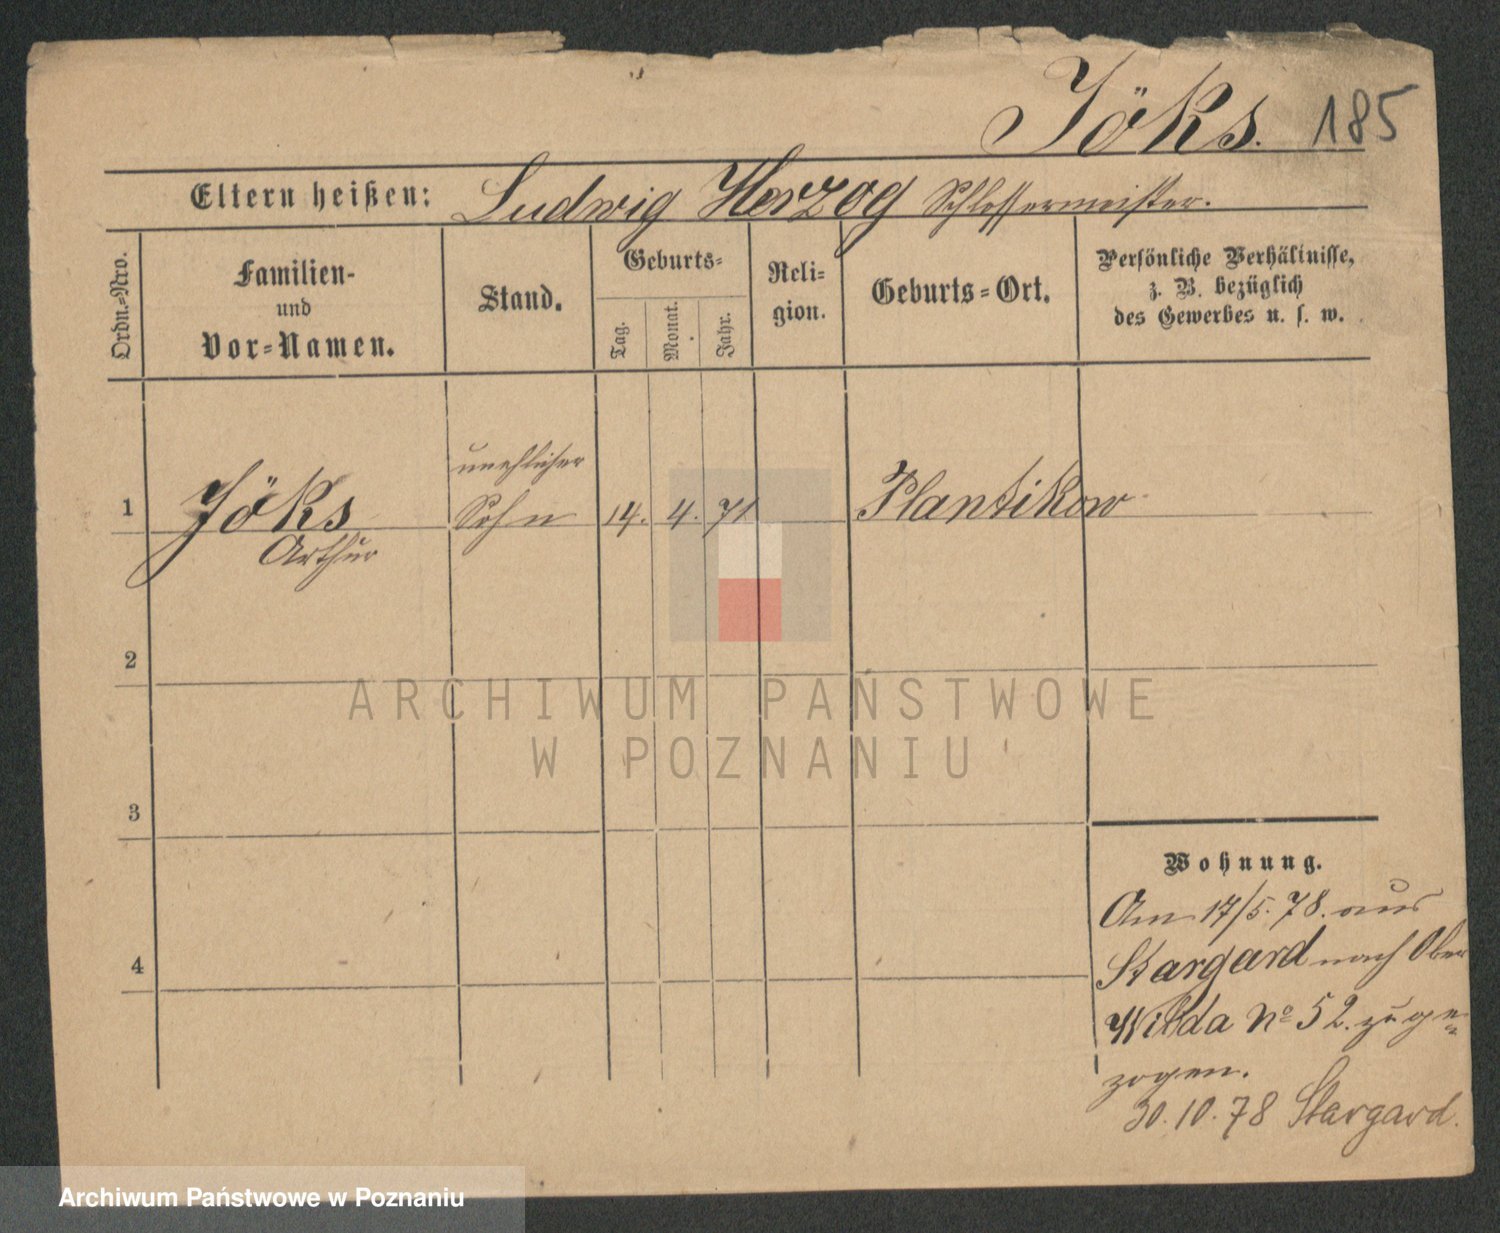 Jöks. 185
Eltern heißen: Ludwig Herzog Schlossermeister.
Ordn.-Nro.
Familien-
und
Vor-Namen.
Stand.
Geburts-
Tag.
Monat.
Jahr.
Reli-
gion.
Geburts-Ort.
Persönliche Verhältnisse,
z. B. bezüglich
des Gewerbes u. s. w.
unehlicher
1 Jöks Sohn 14. 4. 71 Plantikow
Arthur
2
ARCHIWUM PAŃSTWOWE
W POZNANIU
3
Wohnung.
Am 17/5. 78. aus
Stargard nach Ober
4
Wilda No 52. zuge-
zogen.
30.10.78 Stargard.
Archiwum Państwowe w Poznaniu